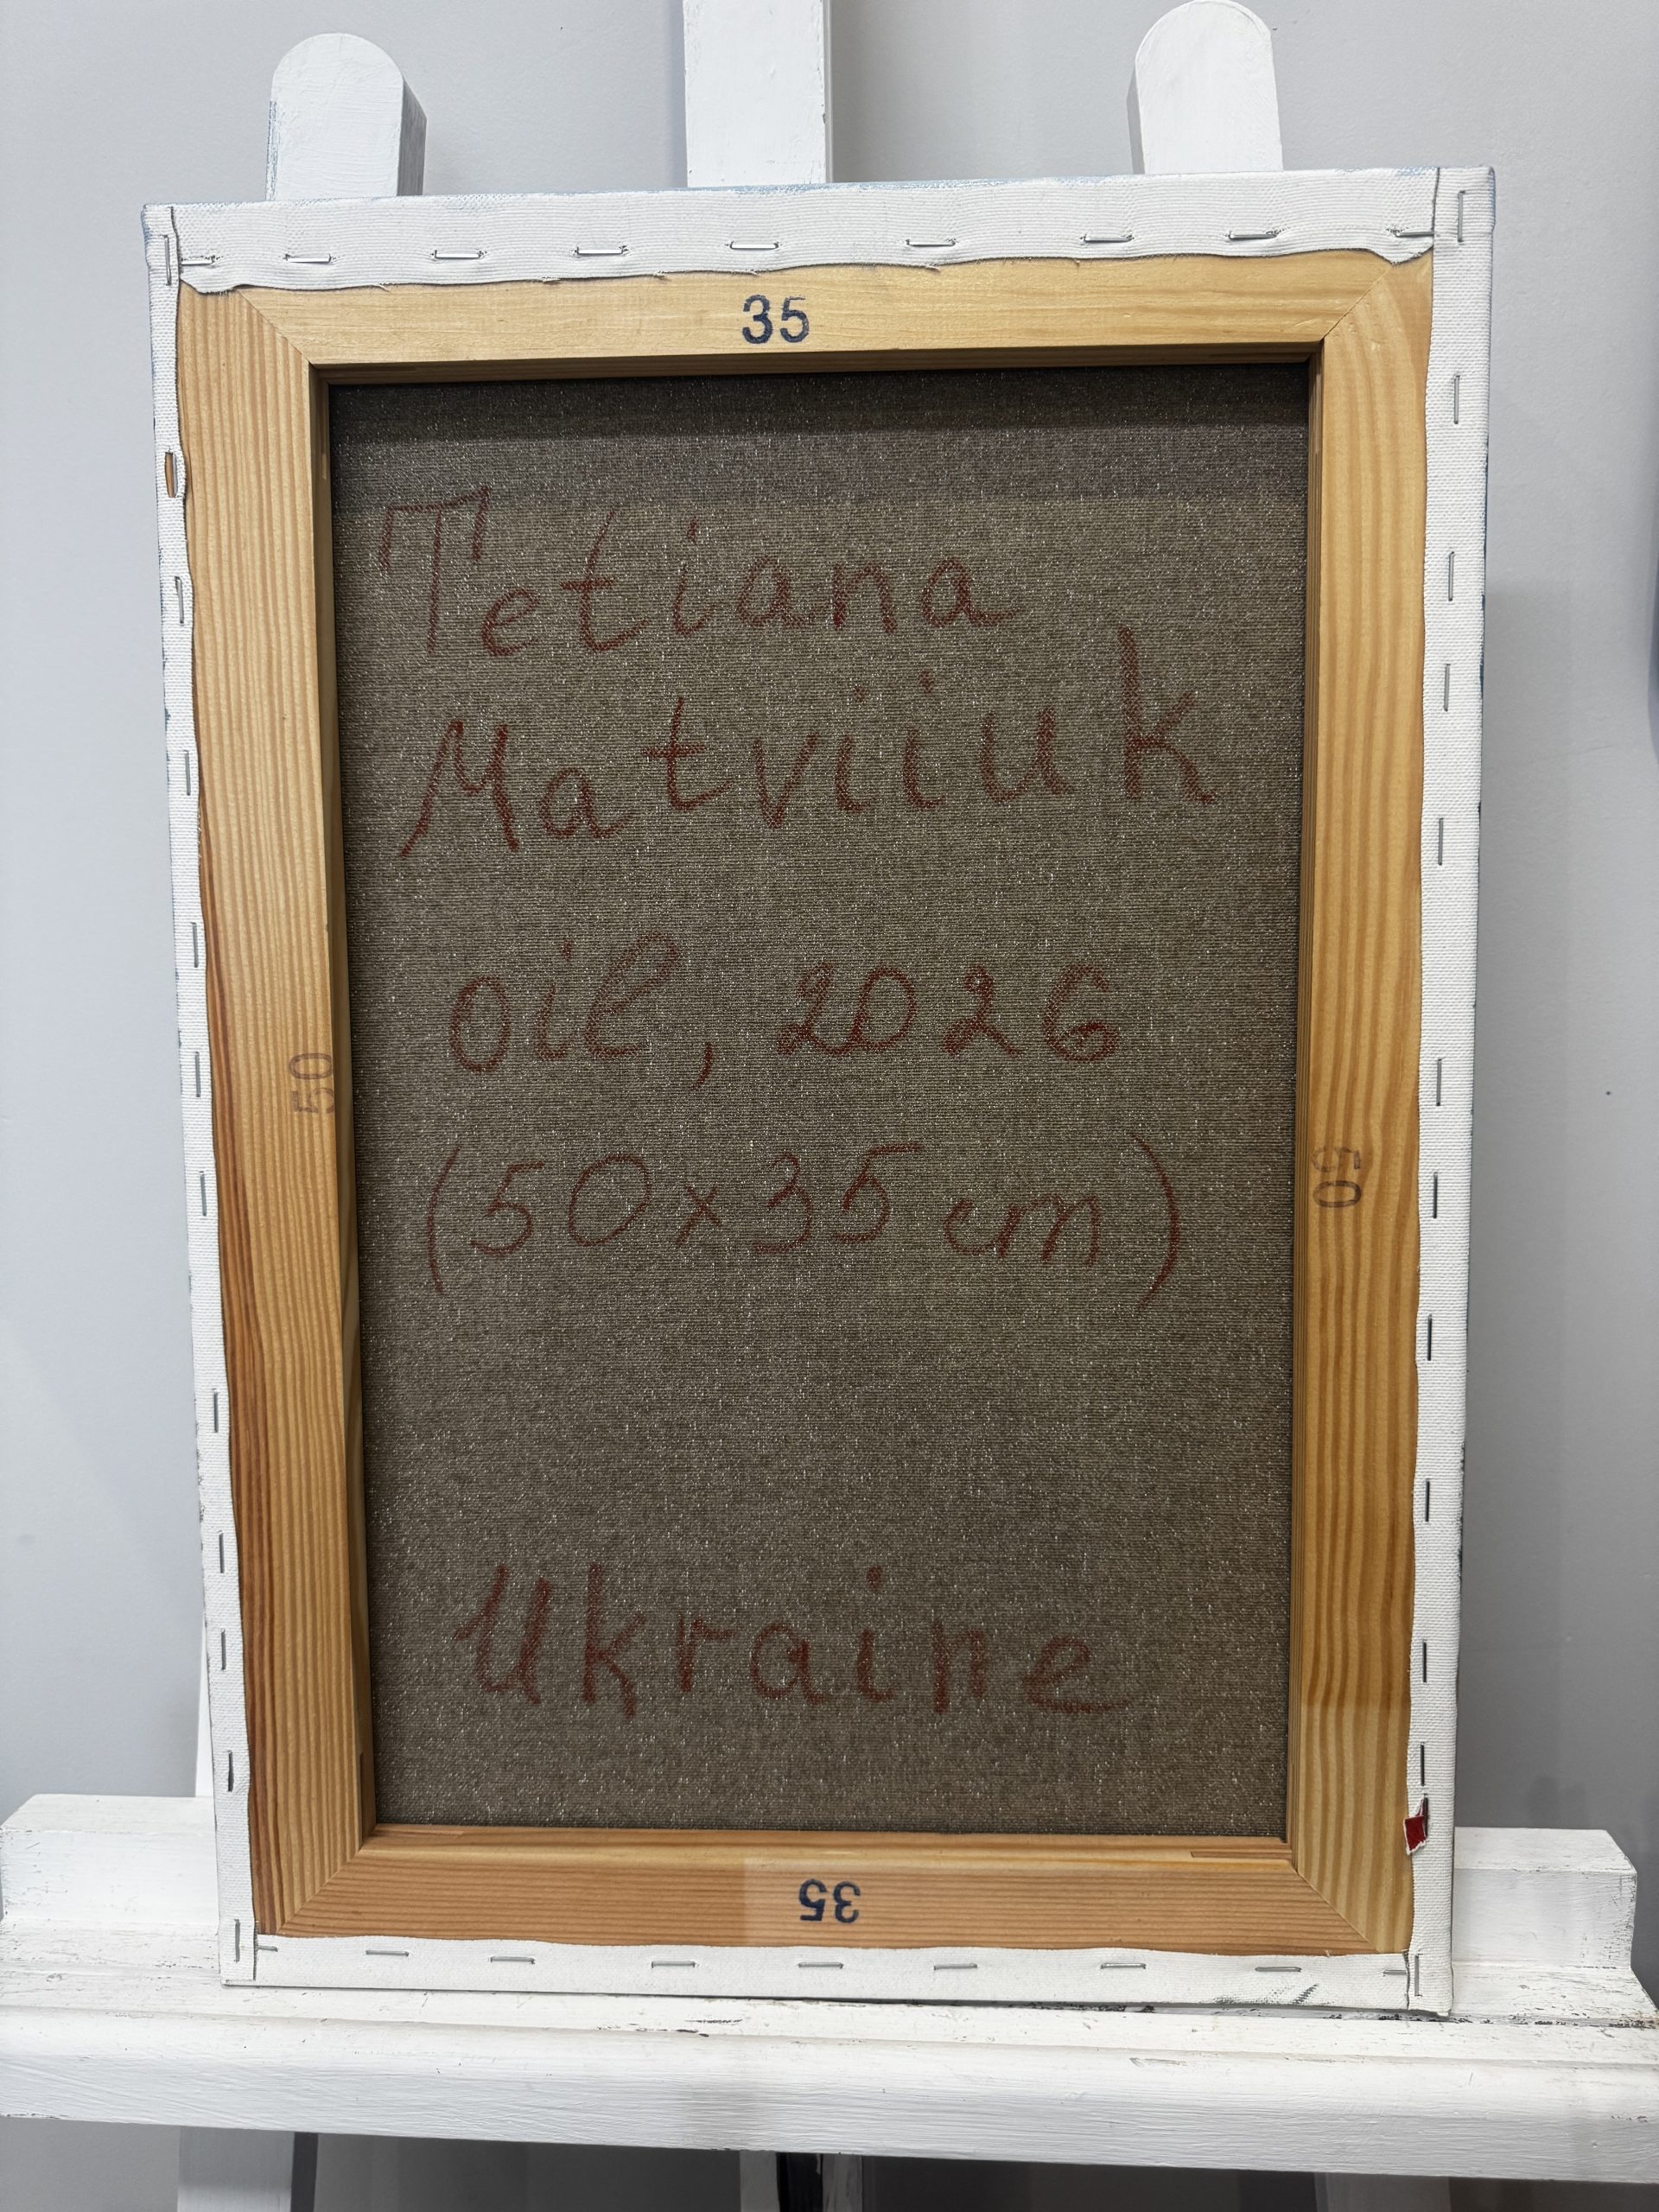 35
Tetiana
Matviiuk
oil, 2026
50
50
(50x35 cm)
Ukraine
35